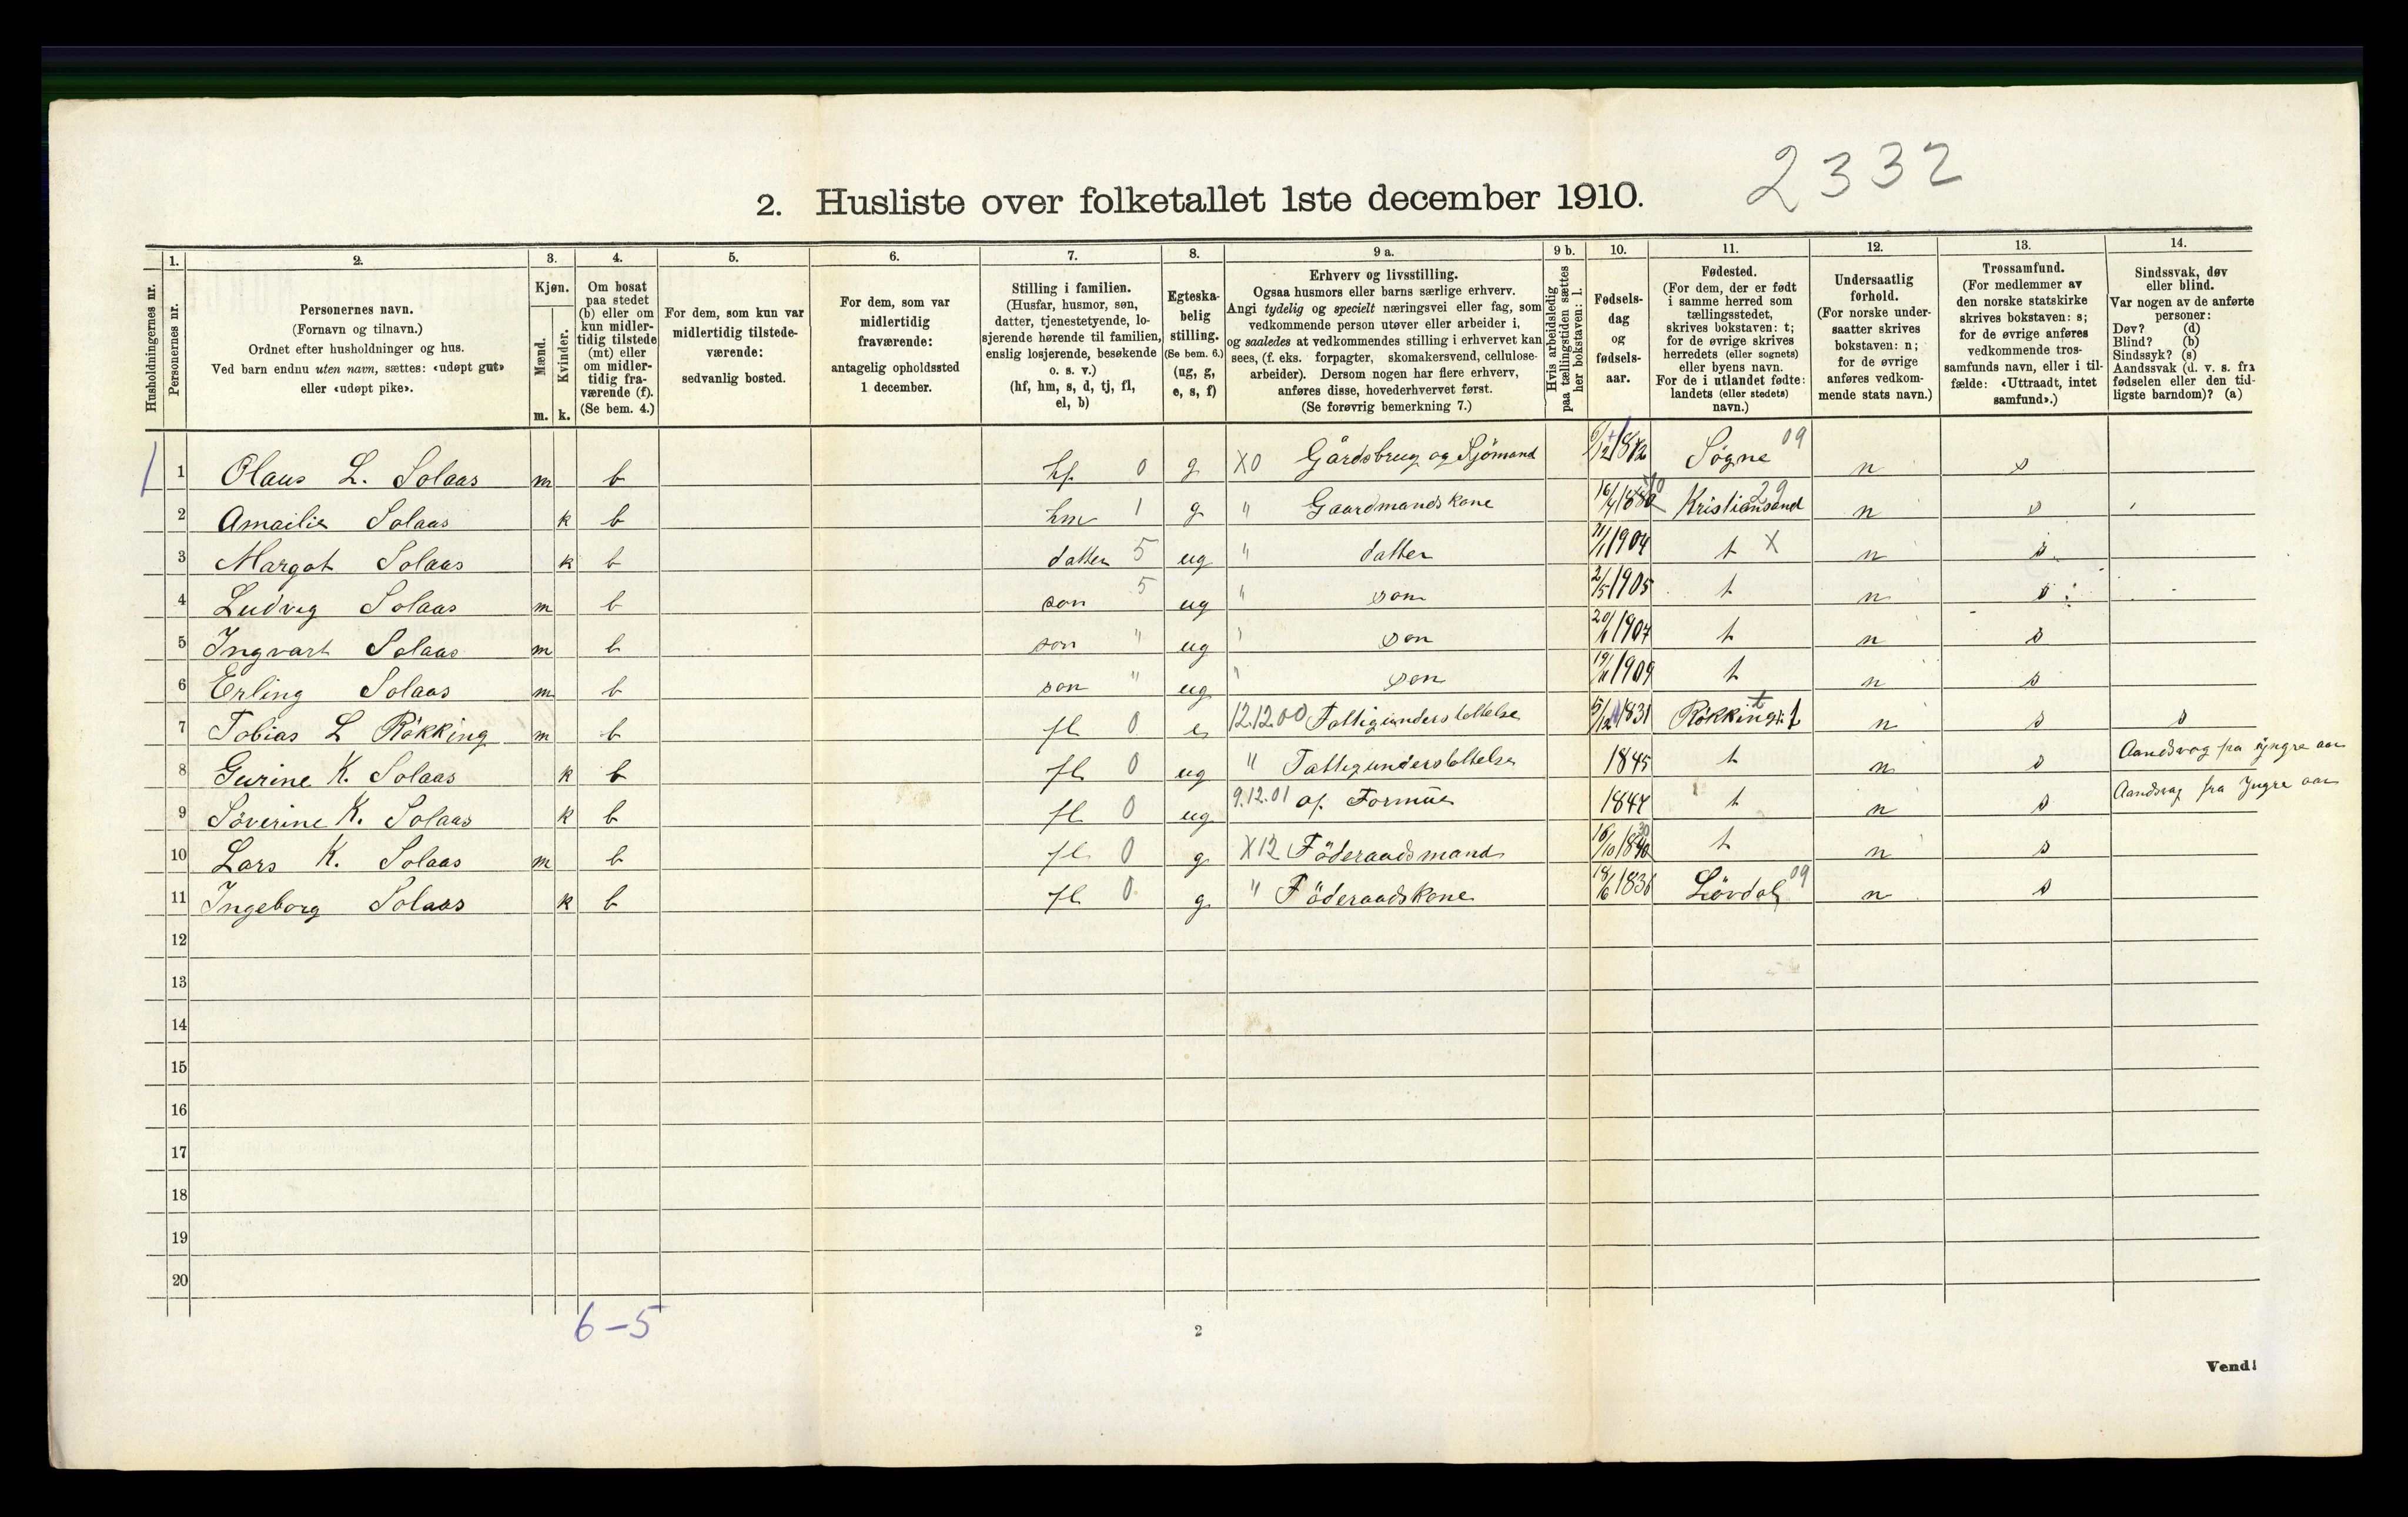 2332
2. Husliste over folketallet 1ste december 1910.
1. 2. 3. 4. 5. 6. 7. 8. 9 a. 9 b. 10. 11. 12. 13. 14.
Husholdningernes nr.
Personernes nr.
Personernes navn.
(Fornavn og tilnavn.)
Ordnet efter husholdninger og hus.
Ved barn endnu uten navn, sættes: «udøpt gut»
eller «udøpt pike».
Kjøn.
Mænd.
Kvinder.
m. k.
Om bosat
paa stedet
(b) eller om
kun midler-
tidig tilstede
(mt) eller
om midler-
tidig fra-
værende (f).
(Se bem. 4.)
For dem, som kun var
midlertidig tilstede-
værende:
sedvanlig bosted.
For dem, som var
midlertidig
fraværende:
antagelig opholdssted
1 december.
Stilling i familien.
(Husfar, husmor, søn,
datter, tjenestetyende, lo-
sjerende hørende til familien,
enslig losjerende, besøkende
o. s. v.)
(hf, hm, s, d, tj, fl,
el, b)
Egteska-
belig
stilling.
(Se bem. 6.)
(ug, g,
e, s, f)
Erhverv og livsstilling.
Ogsaa husmors eller barns særlige erhverv.
Angi tydelig og specielt næringsvei eller fag, som
vedkommende person utøver eller arbeider i,
og saaledes at vedkommendes stilling i erhvervet kan
sees, (f. eks. forpagter, skomakersvend, cellulose-
arbeider). Dersom nogen har flere erhverv,
anføres disse, hovederhvervet først.
(Se forøvrig bemerkning 7.)
Hvis arbeidsledig
paa tællingstiden sættes
her bokstaven: l.
Fødsels-
dag
og
fødsels-
aar.
Fødested.
(For dem, der er født
i samme herred som
tællingsstedet,
skrives bokstaven: t;
for de øvrige skrives
herredets (eller sognets)
eller byens navn.
For de i utlandet fødte:
landets (eller stedets)
navn.)
Undersaatlig
forhold.
(For norske under-
saatter skrives
bokstaven: n;
for de øvrige
anføres vedkom-
mende stats navn.)
Trossamfund.
(For medlemmer av
den norske statskirke
skrives bokstaven: s;
for de øvrige anføres
vedkommende tros-
samfunds navn, eller i til-
fælde: «Uttraadt, intet
samfund».)
Sindssvak, døv
eller blind.
Var nogen av de anførte
personer:
Døv? (d)
Blind? (b)
Sindssyk? (s)
Aandssvak (d. v. s. fra
fødselen eller den tid-
ligste barndom)? (a)
1 1 Olaus L. Solaas m b hf 0 g X0 Gårdsbrug og Sjömand Søgne 09 n s
2 Amailie Solaas k b hm 1 g " Gaardmandskone 16/4 1880 Kristiansand 29 n s
3 Margot Solaas k b datter 5 ug " datter 1904 t X n s
4 Ludvig Solaas m b son 5 ug " son 2/5 1905 t n s
5 Ingvart Solaas m b son " ug " son 1907 t n s
6 Erling Solaas m b son " ug " son 1909 t n s
7 Tobias L Rökking m b fl 0 e 12.12.00 Fattigunderstottelse 5/12 1831 Rökking t n s s
8 Gurine K. Solaas k b fl 0 ug " Fattigunderstottelse 1845 t n s Aandsvag fra yngre aar
9 Söverine K. Solaas k b fl 0 ug 9.12.01 af Formue 1847 t n s Aandsvag fra Yngre aar
10 Lars K. Solaas m b fl 0 g X12 Föderaadsmand 16/10 t n s
11 Ingeborg Solaas k b fl 0 g " Föderaadskone 18/6 1836 Lövdal 09 n s
12
13
14
15
16
17
18
19
20
6-5
2
Vend!